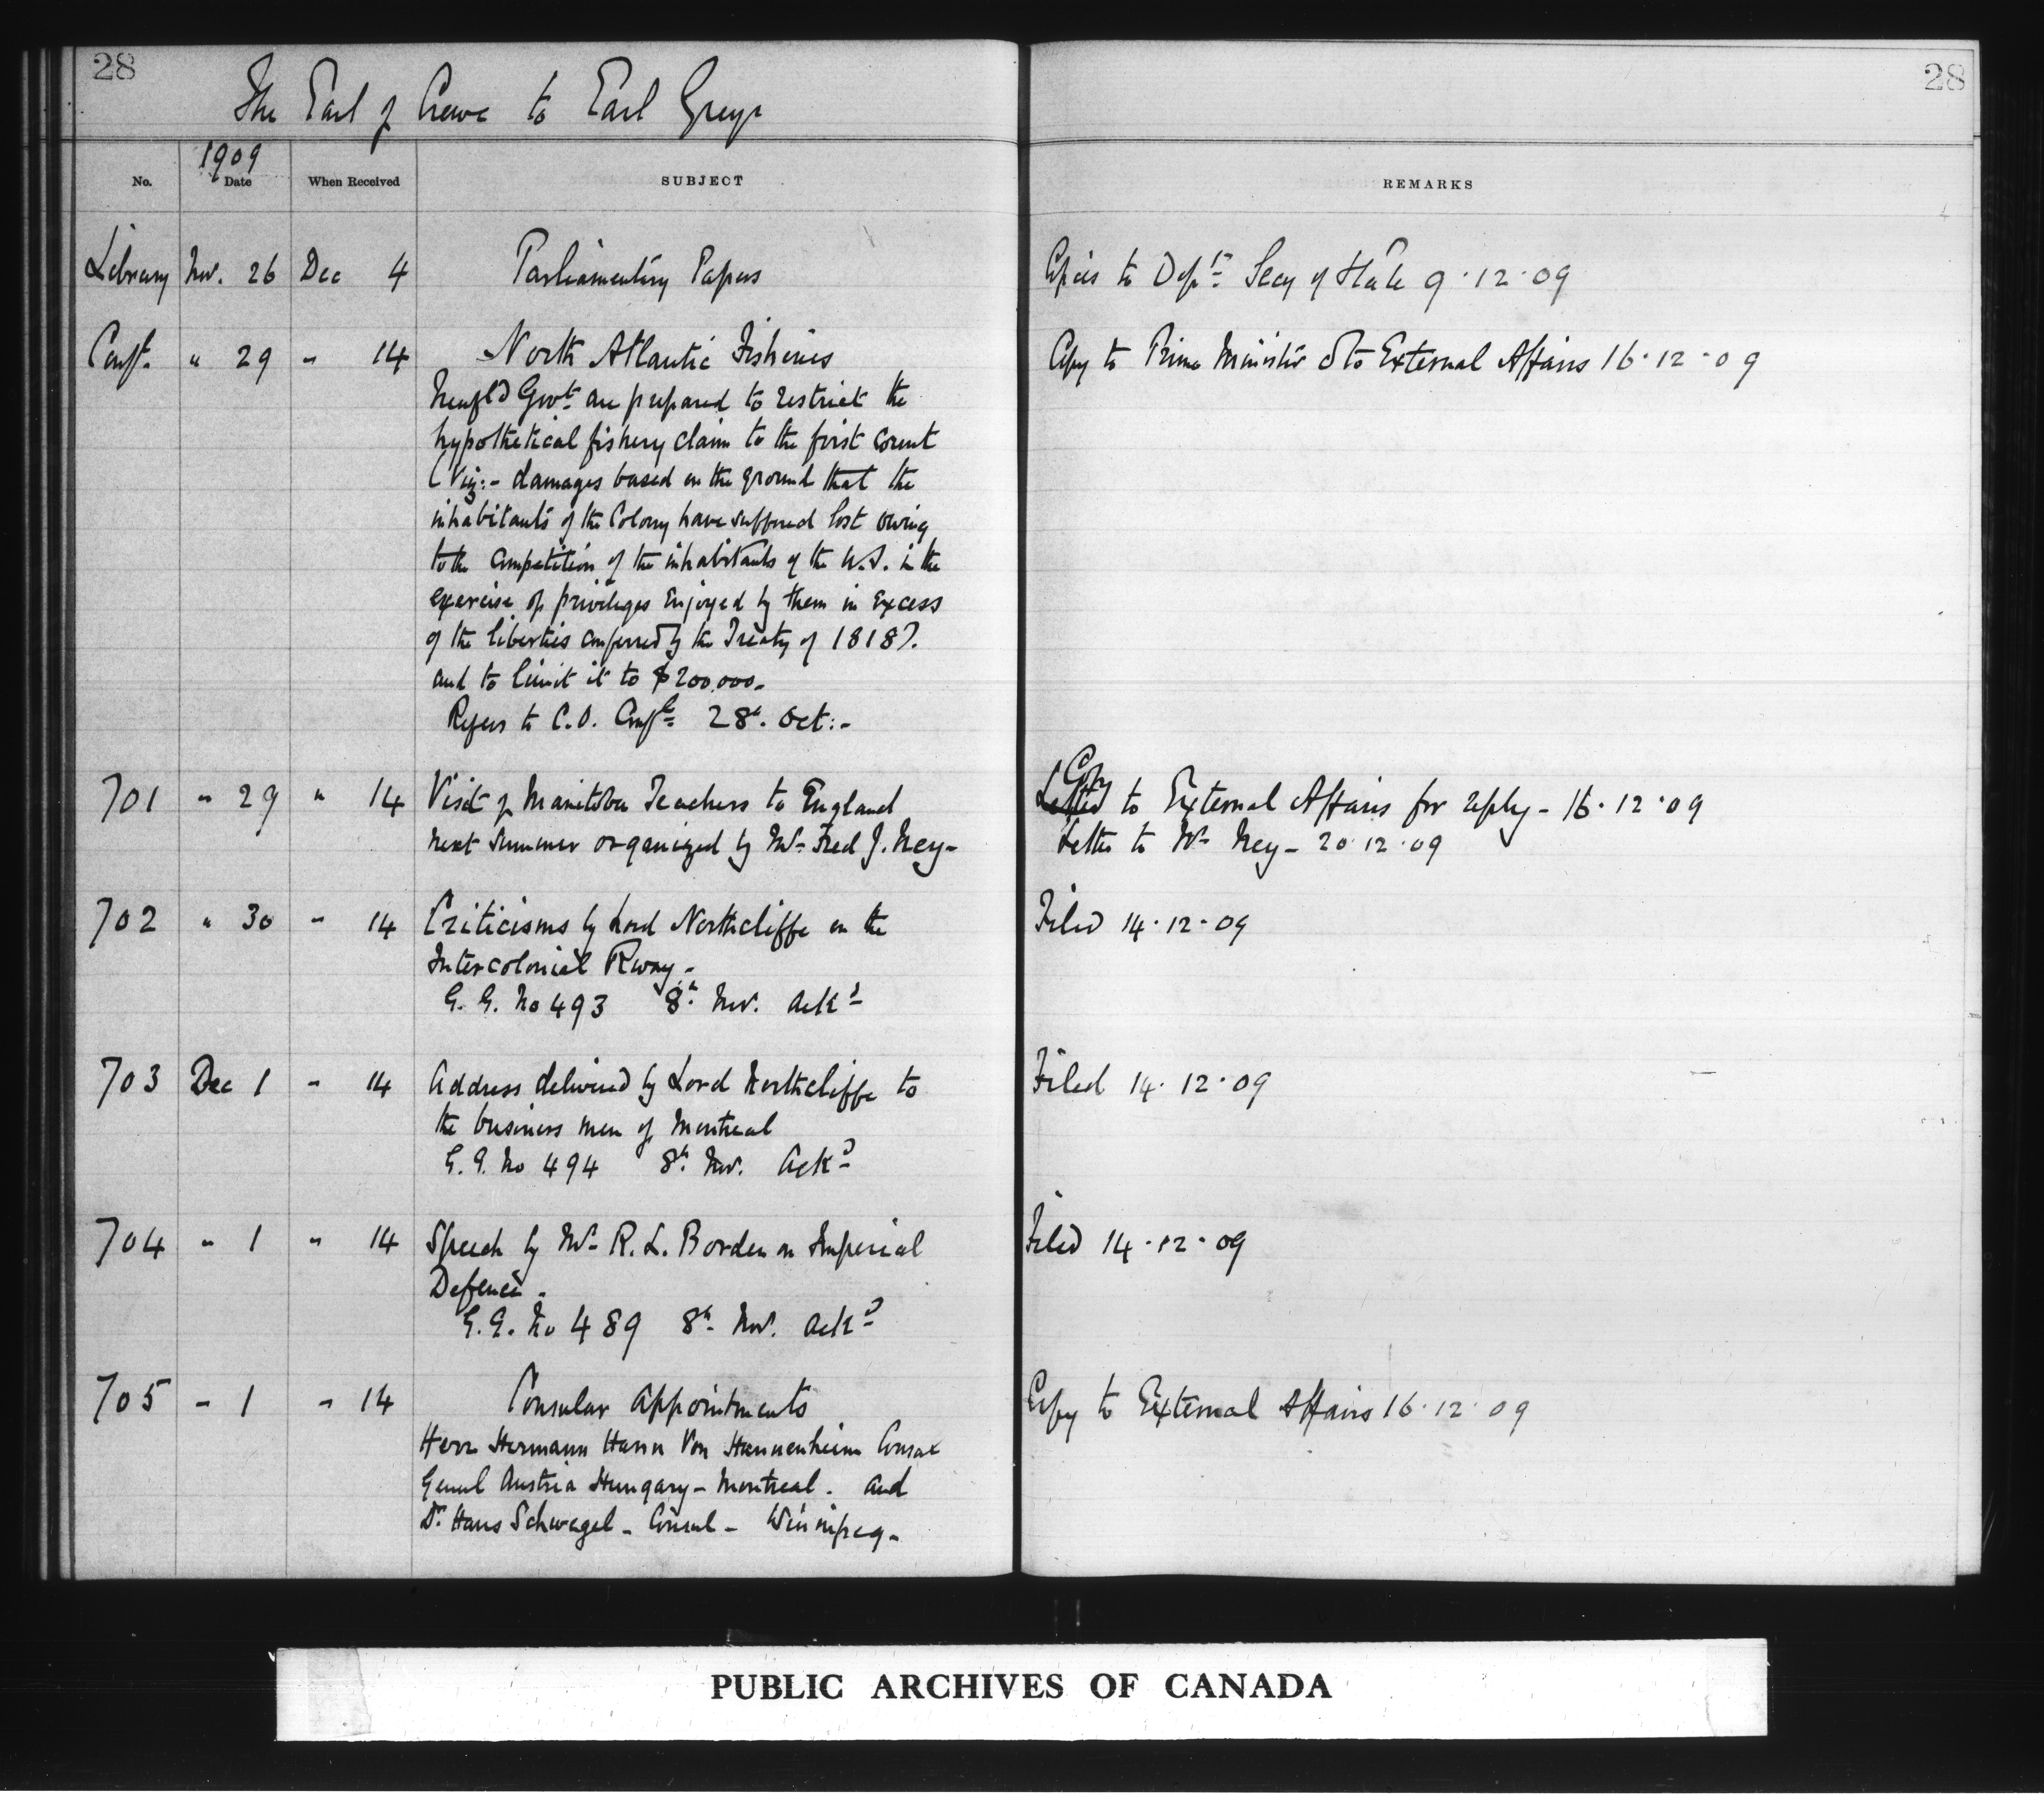 28
28
The Earl of Crewe to Earl Grey.
1909
No. Date When Received SUBJECT REMARKS
Library Nov. 26 Dec 4 Parliamentary Papers Copies to Dept. Secy of State 9.12.09
Conf. " 29 " 14 North Atlantic Fisheries Copy to Prime Minister & to External Affairs 16.12.09
Newfld Govt. are prepared to restrict the
hypothetical fishery claim to the first count
(Viz:- damages based on the ground that the
inhabitants of the Colony have suffered lost owing
to the competition of the inhabitants of the U.S. in the
exercise of privileges enjoyed by them in excess
of the liberties conferred by the Treaty of 1818).
and to limit it to $200,000.
Refers to C.O. Confl. 28th. Oct:-
Copy
701 " 29 " 14 Visit of Manitoba Teachers to England to External Affairs for reply - 16.12.09
next summer organized by Mr. Fred J. Ney- Letter to Mr Ney - 20.12.09
702 " 30 " 14 Criticisms by Lord Northcliffe on the Filed 14.12.09
Intercolonial Rway-
G.G. No 493 8th. Nov. Ackd
703 Dec 1 " 14 Address delivered by Lord Northcliffe to Filed 14.12.09
the business men of Montreal
G.G. No 494 8th. Nov. Ackd
704 " 1 " 14 Speech by Mr. R.L. Borden on Imperial Filed 14.12.09
Defence.
G.G. No 489 8th. Nov. ackd
705 " 1 " 14 Consular Appointments Copy to External Affairs 16.12.09
Herr Hermann Hann Von Hannenheim Consul
Genrl Austria Hungary - Montreal. and
Dr. Hans Schwegel - Consul - Winnipeg-
PUBLIC ARCHIVES OF CANADA